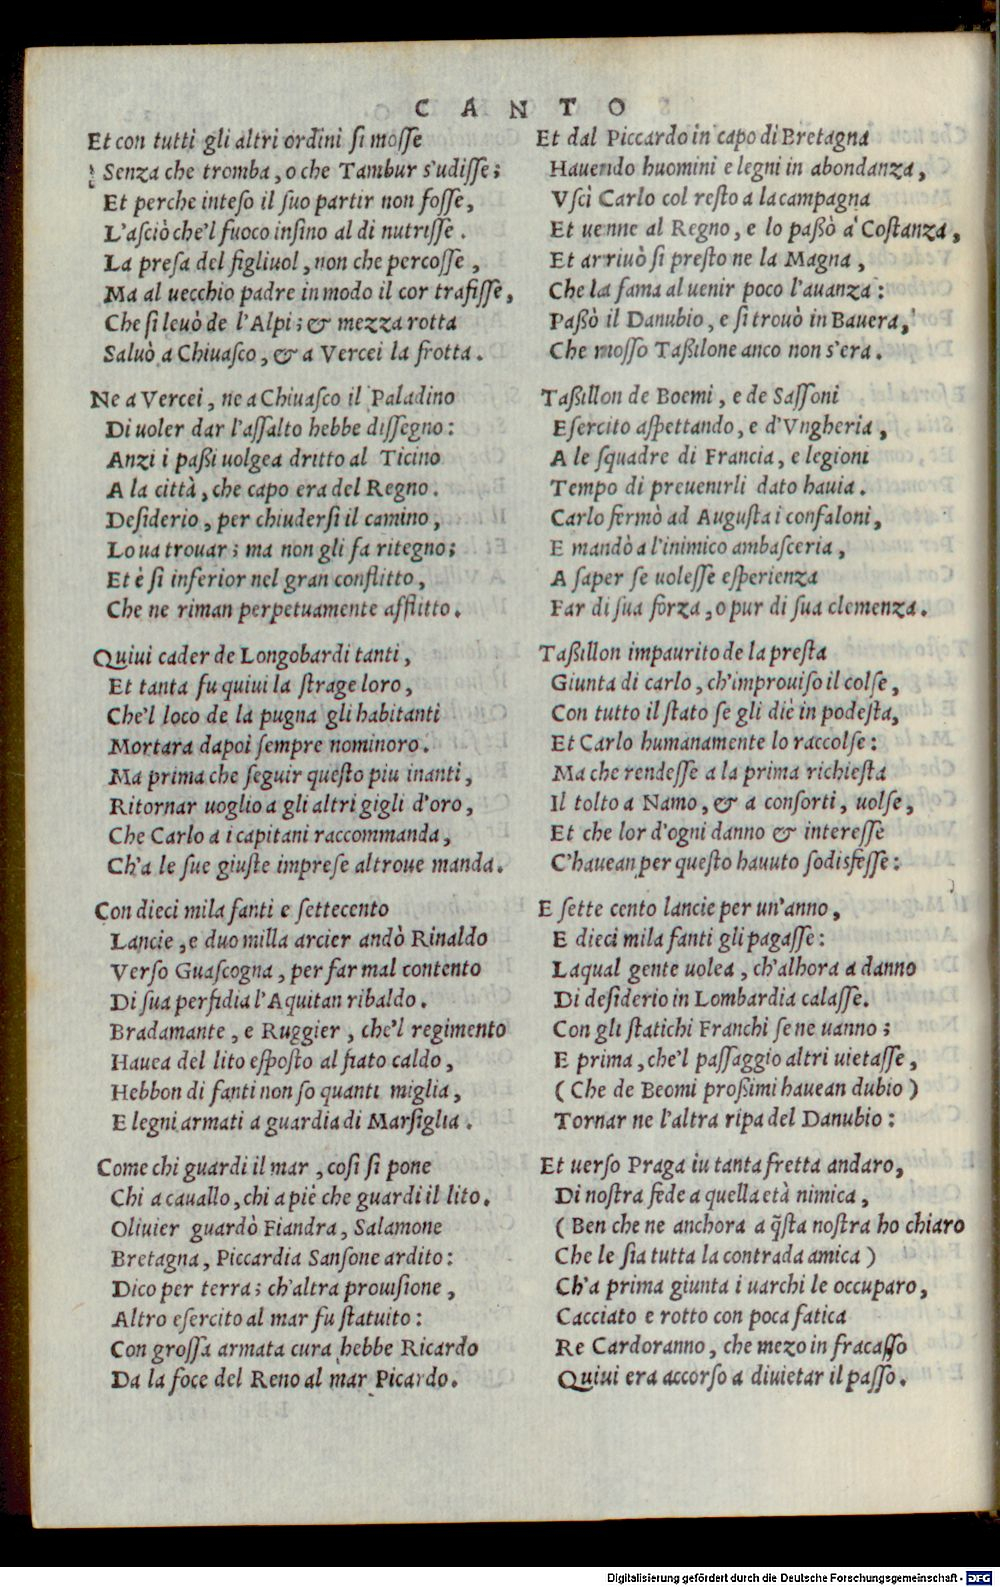 CANTO
Et con tutti gli altri ordini si mosse
Senza che tromba, o che Tambur s'udisse;
Et perche inteso il suo partir non fosse,
L'asciò che'l fuoco insino al di nutrisse.
La presa del figliuol, non che percosse,
Ma al uecchio padre in modo il cor trafisse,
Che si leuò de l'Alpi; & mezza rotta
Saluò a Chiuasco, & a Vercei la frotta.
Ne a Vercei, ne a Chiuasco il Paladino
Di uoler dar l'assalto hebbe dissegno:
Anzi i passi uolgea dritto al Ticino
A la città, che capo era del Regno.
Desiderio, per chiudersi il camino,
Lo ua trouar; ma non gli fa ritegno;
Et è si inferior nel gran conflitto,
Che ne riman perpetuamente afflitto.
Quiui cader de Longobardi tanti,
Et tanta fu quiui la strage loro,
Che'l loco de la pugna gli habitanti
Mortara dapoi sempre nominoro.
Ma prima che seguir questo piu inanti,
Ritornar uoglio a gli altri gigli d'oro,
Che Carlo a i capitani raccommanda,
Ch'a le sue giuste imprese altroue manda.
Con dieci mila fanti e settecento
Lancie, e duo milla arcier andò Rinaldo
Verso Guascogna, per far mal contento
Di sua perfidia l'Aquitan ribaldo.
Bradamante, e Ruggier, che'l regimento
Hauea del lito esposto al fiato caldo,
Hebbon di fanti non so quanti miglia,
E legni armati a guardia di Marsiglia.
Come chi guardi il mar, cosi si pone
Chi a cauallo, chi a piè che guardi il lito.
Oliuier guardò Fiandra, Salamone
Bretagna, Piccardia Sansone ardito:
Dico per terra; ch'altra prouisione,
Altro esercito al mar fu statuito:
Con grossa armata cura hebbe Ricardo
Da la foce del Reno al mar Picardo.
Et dal Piccardo in capo di Bretagna
Hauendo huomini e legni in abondanza,
Vscì Carlo col resto a la campagna
Et uenne al Regno, e lo passò a' Costanza,
Et arriuò si presto ne la Magna,
Che la fama al uenir poco l'auanza:
Passò il Danubio, e si trouò in Bauera,
Che mosso Tassilone anco non s'era.
Tassillon de Boemi, e de Sassoni
Esercito aspettando, e d'Vngheria,
A le squadre di Francia, e legioni
Tempo di preuenirli dato hauia.
Carlo fermò ad Augusta i confaloni,
E mandò a l'inimico ambasceria,
A saper se uolesse esperienza
Far di sua forza, o pur di sua clemenza.
Tassillon impaurito de la presta
Giunta di carlo, ch'improuiso il colse,
Con tutto il stato se gli diè in podesta,
Et Carlo humanamente lo raccolse:
Ma che rendesse a la prima richiesta
Il tolto a Namo, & a consorti, uolse,
Et che lor d'ogni danno & interesse
C'hauean per questo hauuto sodisfesse:
E sette cento lancie per un'anno,
E dieci mila fanti gli pagasse:
Laqual gente uolea, ch'alhora a danno
Di desiderio in Lombardia calasse.
Con gli statichi Franchi se ne uanno;
E prima, che'l passaggio altri uietasse,
(Che de Beomi prossimi hauean dubio)
Tornar ne l'altra ripa del Danubio:
Et uerso Praga iu tanta fretta andaro,
Di nostra fede a quella età nimica,
(Ben che ne anchora a q̃sta nostra ho chiaro
Che le sia tutta la contrada amica)
Ch'a prima giunta i uarchi le occuparo,
Cacciato e rotto con poca fatica
Re Cardoranno, che mezo in fracasso
Quiui era accorso a diuietar il passo.
Digitalisierung gefördert durch die Deutsche Forschungsgemeinschaft - DFG